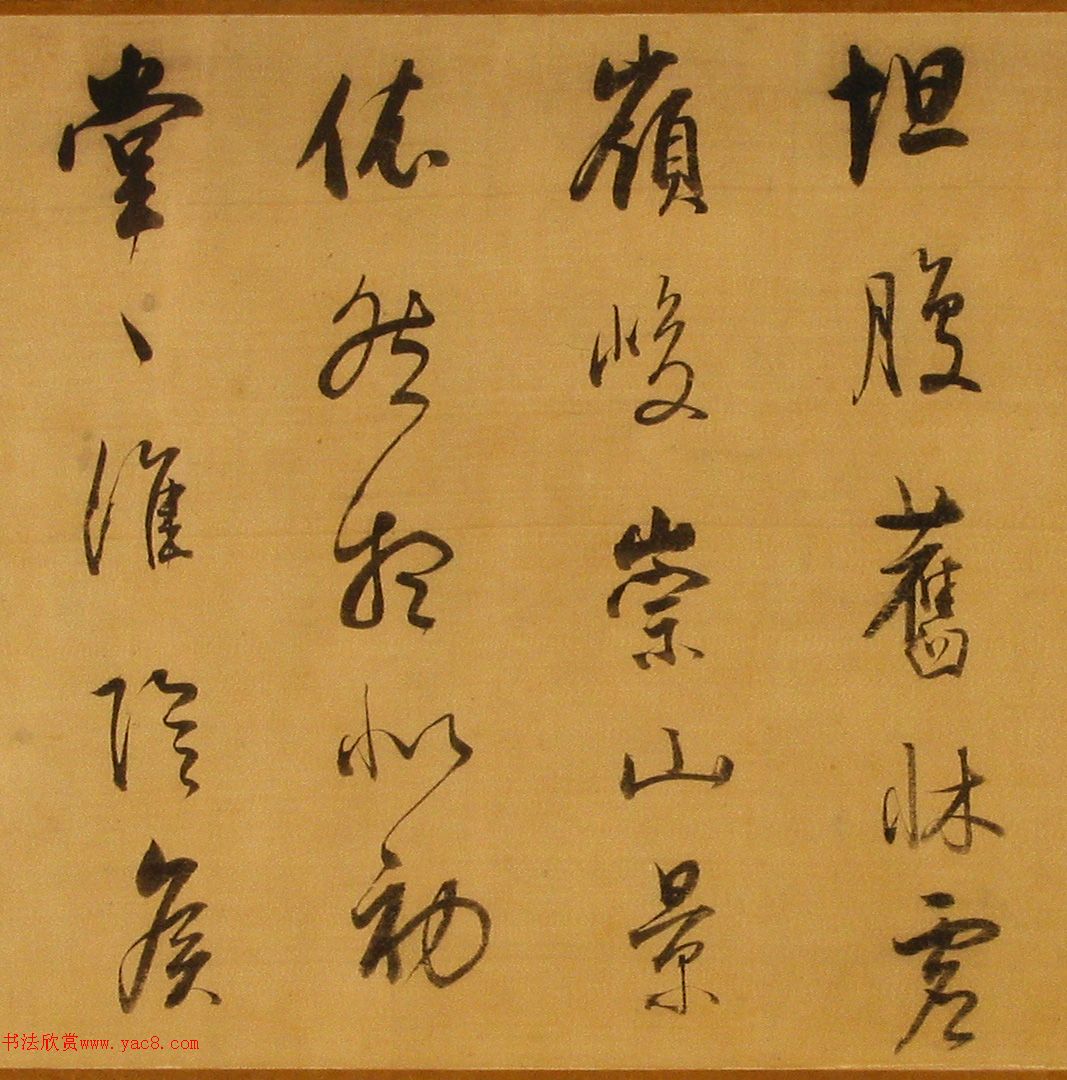 坦腹舊牀虛
嶺峻崇山景
依然相似初
堂、淮陰侯
书法欣赏www.yac8.com